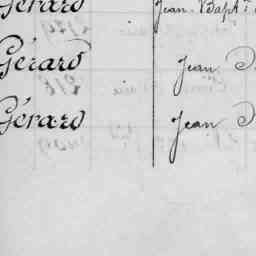 Gérard Jean Bapt.
Gérard Jean
Gérard Jean